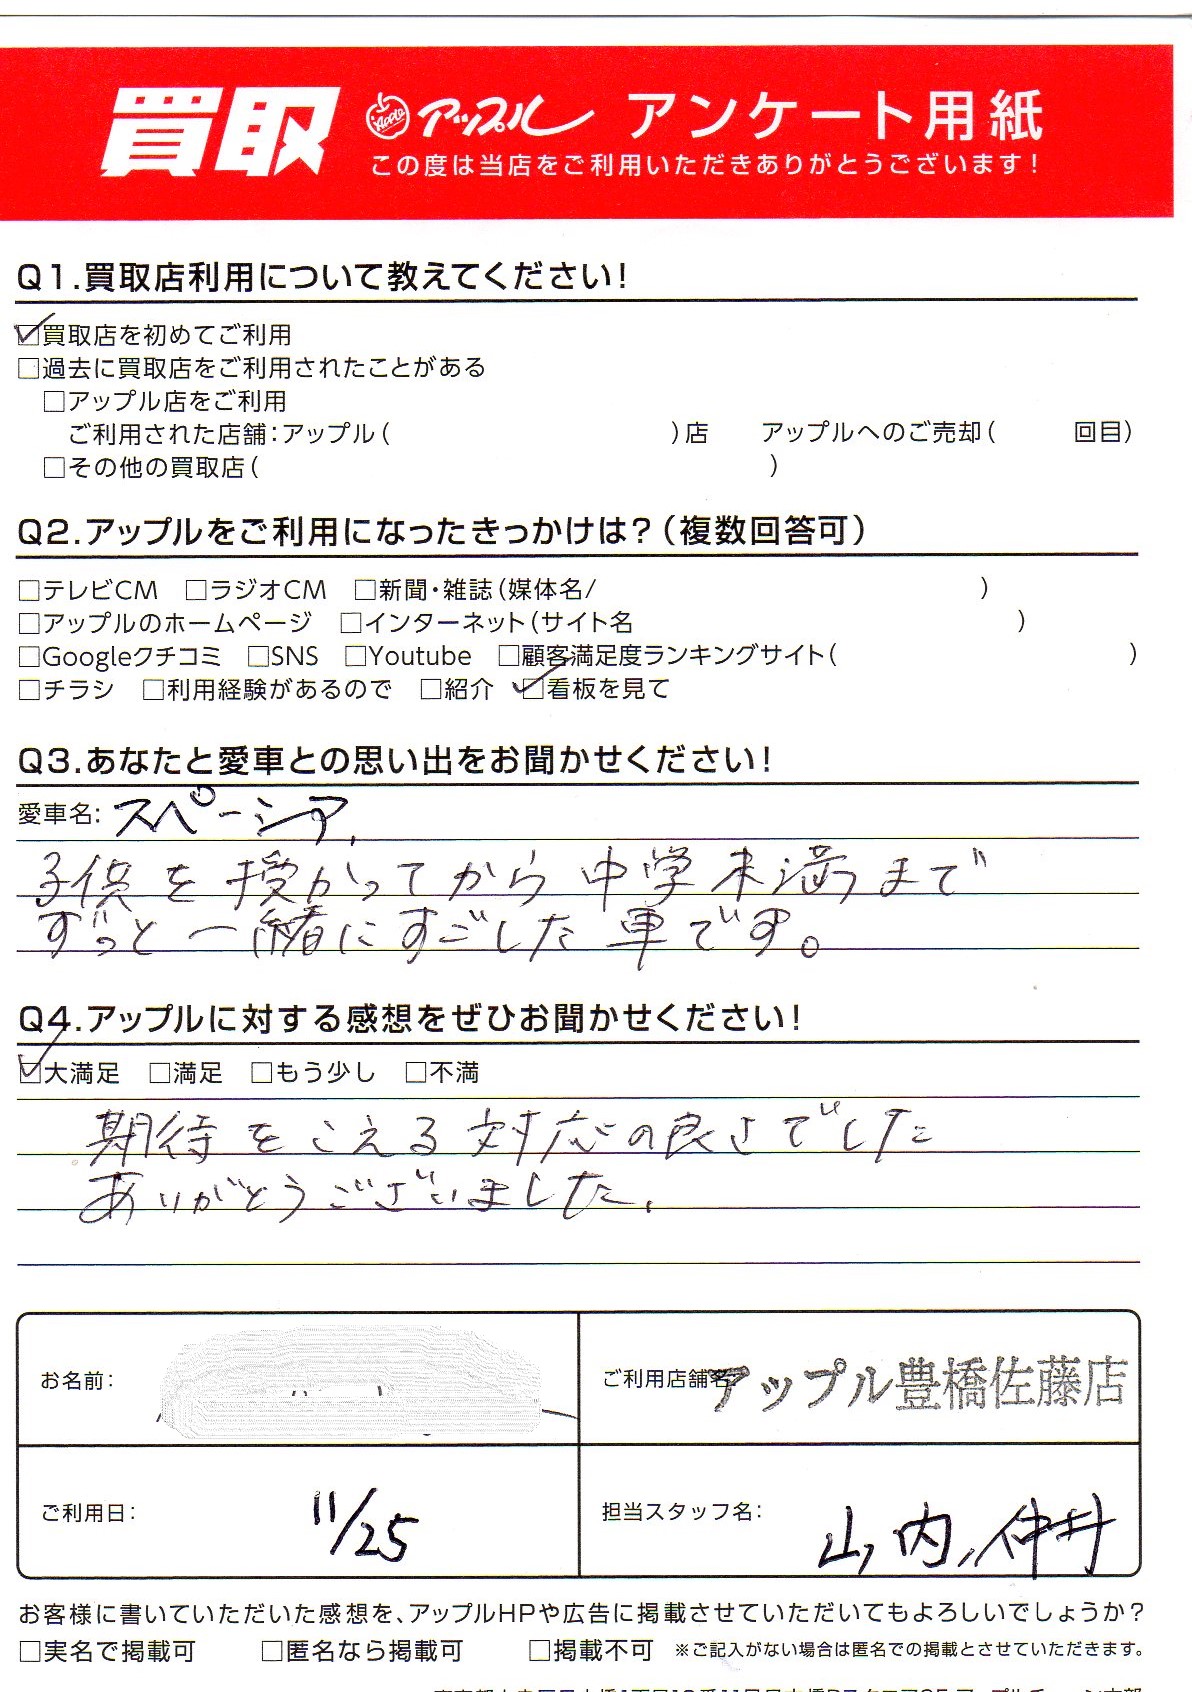 買取 Apple アップル アンケート用紙
この度は当店をご利用いただきありがとうございます!
Q1.買取店利用について教えてください!
☑買取店を初めてご利用
□過去に買取店をご利用されたことがある
□アップル店をご利用
ご利用された店舗:アップル( )店 アップルへのご売却( 回目)
□その他の買取店( )
Q2.アップルをご利用になったきっかけは?(複数回答可)
□テレビCM □ラジオCM □新聞・雑誌(媒体名/ )
□アップルのホームページ □インターネット(サイト名 )
□Googleクチコミ □SNS □Youtube □顧客満足度ランキングサイト( )
□チラシ □利用経験があるので □紹介 ☑看板を見て
Q3.あなたと愛車との思い出をお聞かせください!
愛車名: スペーシア
子供を授かってから中学未満まで
ずっと一緒にすごした車です。
Q4.アップルに対する感想をぜひお聞かせください!
☑大満足 □満足 □もう少し □不満
期待をこえる対応の良さでした
ありがとうございました.
お名前: ご利用店舗名 アップル豊橋佐藤店
ご利用日: 11/25 担当スタッフ名: 山内,仲井
お客様に書いていただいた感想を、アップルHPや広告に掲載させていただいてもよろしいでしょうか?
□実名で掲載可 □匿名なら掲載可 □掲載不可 ※ご記入がない場合は匿名での掲載とさせていただきます。